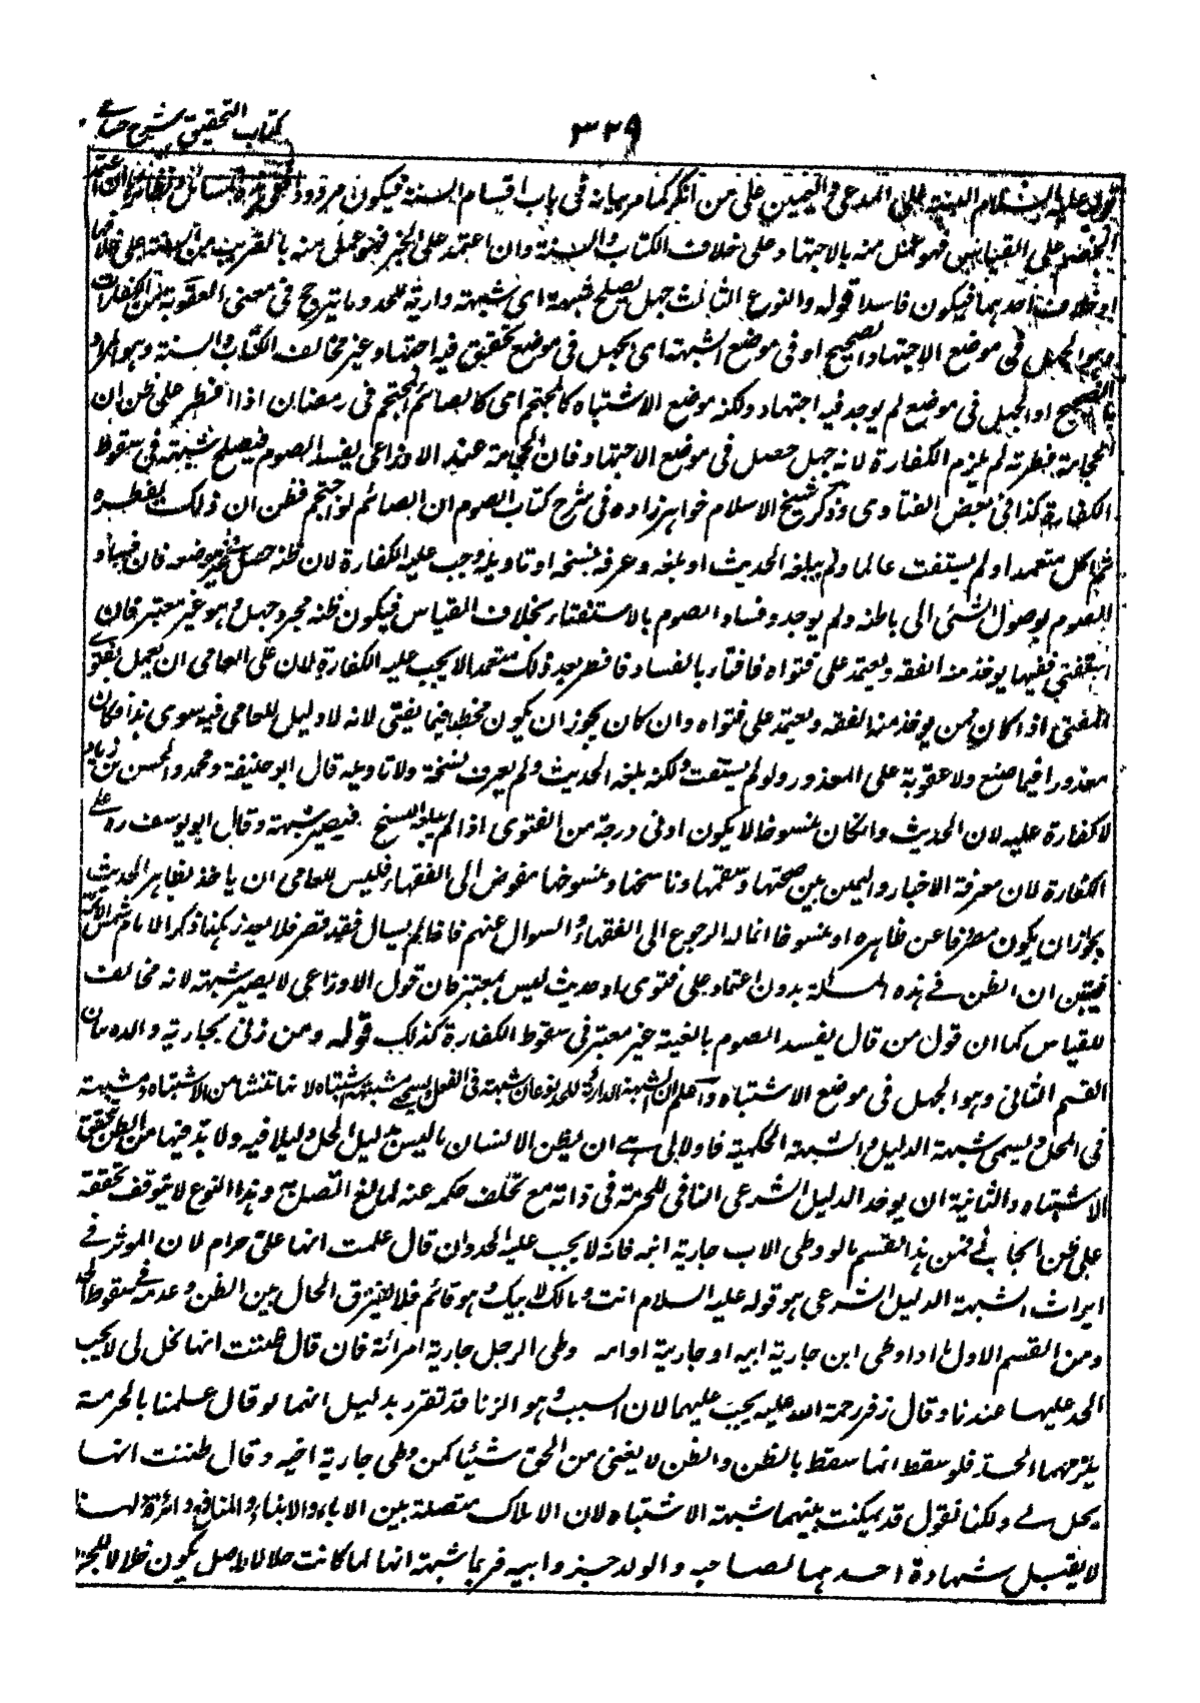 كتاب التحقيق شرح حسامى
٣٢٩
قوله عليه السلام البينة على المدعى واليمين على من انكر كما مر بيانه فى باب اقسام السنة فيكون مردودا
الخصم على القياس فهو عمل منه بالاجتهاد على خلاف الكتاب والسنة وان اعتمد على الخبر فهو عمل منه بالغريب من السنة على خلاف
احدهما فيكون فاسدا قوله والنوع الثالث جهل يصلح شبهة اى شبهة دارية للحد وما يترجح فى معنى العقوبة من الكفارات
وهو الجهل فى موضع الاجتهاد الصحيح او فى موضع الشبهة اى الجهل فى موضع تحقيق فيه اجتهاد غير مخالف الكتاب والسنة وهو المراد
بالصحيح او الجهل فى موضع لم يوجد فيه اجتهاد ولكنه موضع الاشتباه كالمحتجم اى كالصائم المحتجم فى رمضان اذا افطر على ظن ان
الحجامة فطرته لم يلزم الكفارة لانه جهل حصل فى موضع الاجتهاد فان الحجامة عند الاوزاعى يفسد الصوم فيصلح شبهة فى سقوط
الكفارة كذا فى بعض الفتاوى وذكر شيخ الاسلام خواهرزاده فى شرح كتاب الصوم ان الصائم لو احتجم فظن ان ذلك يفطره
ثم اكل متعمدا ولم يستفت عالما ولم يبلغه الحديث او بلغه وعرف نسخه او تاويله وجب عليه الكفارة لان ظنه حصل فى غير موضعه فان فساد
الصوم بوصول الشئ الى باطنه ولم يوجد وفساد الصوم بالاستقاء بخلاف القياس فيكون ظنه مجرد جهل وهو غير معتبر فان
استفتى فقيها يوخذ منه الفقه ويعتمد على فتواه فافتاه بالفساد فافطر بعد ذلك متعمدا لا يجب عليه الكفارة لان على العامى ان يعمل بفتوى
المفتى اذا كان ممن يوخذ منه الفقه ويعتمد على فتواه وان كان يجوز ان يكون مخطيا فيما يفتى لانه لا دليل للعامى فيه سوى هذا فكان
معذورا فيما صنع ولا عقوبة على المعذور ولو لم يستفت ولكنه بلغه الحديث ولم يعرف نسخه ولا تاويله قال ابو حنيفة ومحمد والحسن بن زياد
لا كفارة عليه لان الحديث وان كان منسوخا لا يكون ادنى درجة من الفتوى اذا لم يبلغه النسخ فيصير شبهة وقال ابو يوسف رح عليه
الكفارة لان معرفة الاخبار والتمييز بين صحتها وسقمها وناسخها ومنسوخها مفوض الى الفقهاء فليس للعامى ان ياخذ بظاهر الحديث
بجواز ان يكون مصروفا عن ظاهره او منسوخا انما له الرجوع الى الفقهاء والسوال عنهم فاذا لم يسال فقد قصر فلا يعذر هكذا ذكر الامام شمس الائمة
فتبين ان الظن فى هذه المسئلة بدون اعتماد على فتوى او حديث ليس بمعتبر فان قول الاوزاعى لا يصير شبهة لانه مخالف
للقياس كما ان قول من قال يفسد الصوم بالغيبة غير معتبر فى سقوط الكفارة كذلك قوله ومن زنى بجارية والده بيان
القسم الثانى وهو الجهل فى موضع الاشتباه واعلم ان الشبهة الدارئة للحد نوعان شبهة فى الفعل ويسمى شبهة اشتباه لانها تنشا من الاشتباه وشبهة
فى المحل ويسمى شبهة الدليل والشبهة الحكمية فالاولى هى ان يظن الانسان ما ليس بدليل الحل دليلا فيه ولا بد فيها من الظن ليتحقق
الاشتباه والثانية ان يوجد الدليل الشرعى النافى للحرمة فى ذاته مع تخلف حكمه عنه لمانع اتصل به وهذا النوع لا يتوقف تحققه
على ظن الجانى فمن هذا القسم ما لو وطى الاب جارية ابنه فانه لا يجب عليه الحد وان قال علمت انها على حرام لان الموثر فى
ايراث الشبهة الدليل الشرعى هو قوله عليه السلام انت ومالك لابيك وهو قائم فلا يفترق الحال بين الظن وعدمه فى سقوط الحد
ومن القسم الاول ما اذا وطى ابن جارية ابيه او جارية امه وطى الرجل جارية امرأته فان قال ظننت انها تحل لى لا يجب
الحد عليهما عندنا وقال زفر رحمة الله عليه يجب عليهما لان السبب وهو الزنا قد تقرر بدليل انهما لو قال علمنا بالحرمة
يلزمهما الحد فلو سقط انما سقط بالظن والظن لا يغنى من الحق شيئا كمن وطى جارية اخيه وقال ظننت انها
يحل لى ولكنا نقول قد تمكنت بينهما شبهة الاشتباه لان الاملاك متصلة بين الاباء والابناء والمنافع دائرة لهذا
لا يقبل شهادة احدهما لصاحبه والولد جزء ابيه فربما شبهة انها لما كانت حلالا للاصل يكون حلالا للجزء